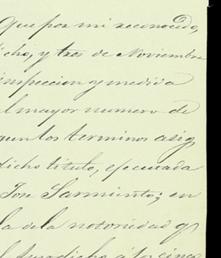 que por mi reconocido,
dicho, y tres de Noviembre
inspeccion y medida
l mayor numero de
gun los terminos asig
dicho titulo, ejecutada
Jose Sarmiento; en
la de la notoriedad q